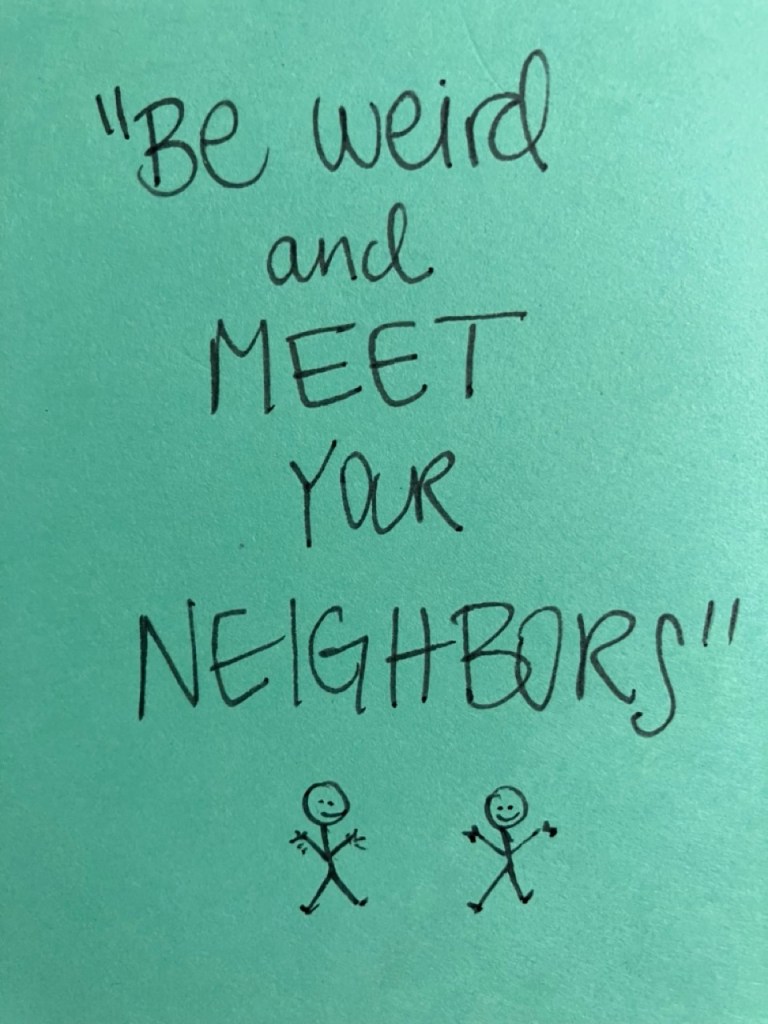 "Be weird
and
MEET
YOUR
NEIGHBORS"